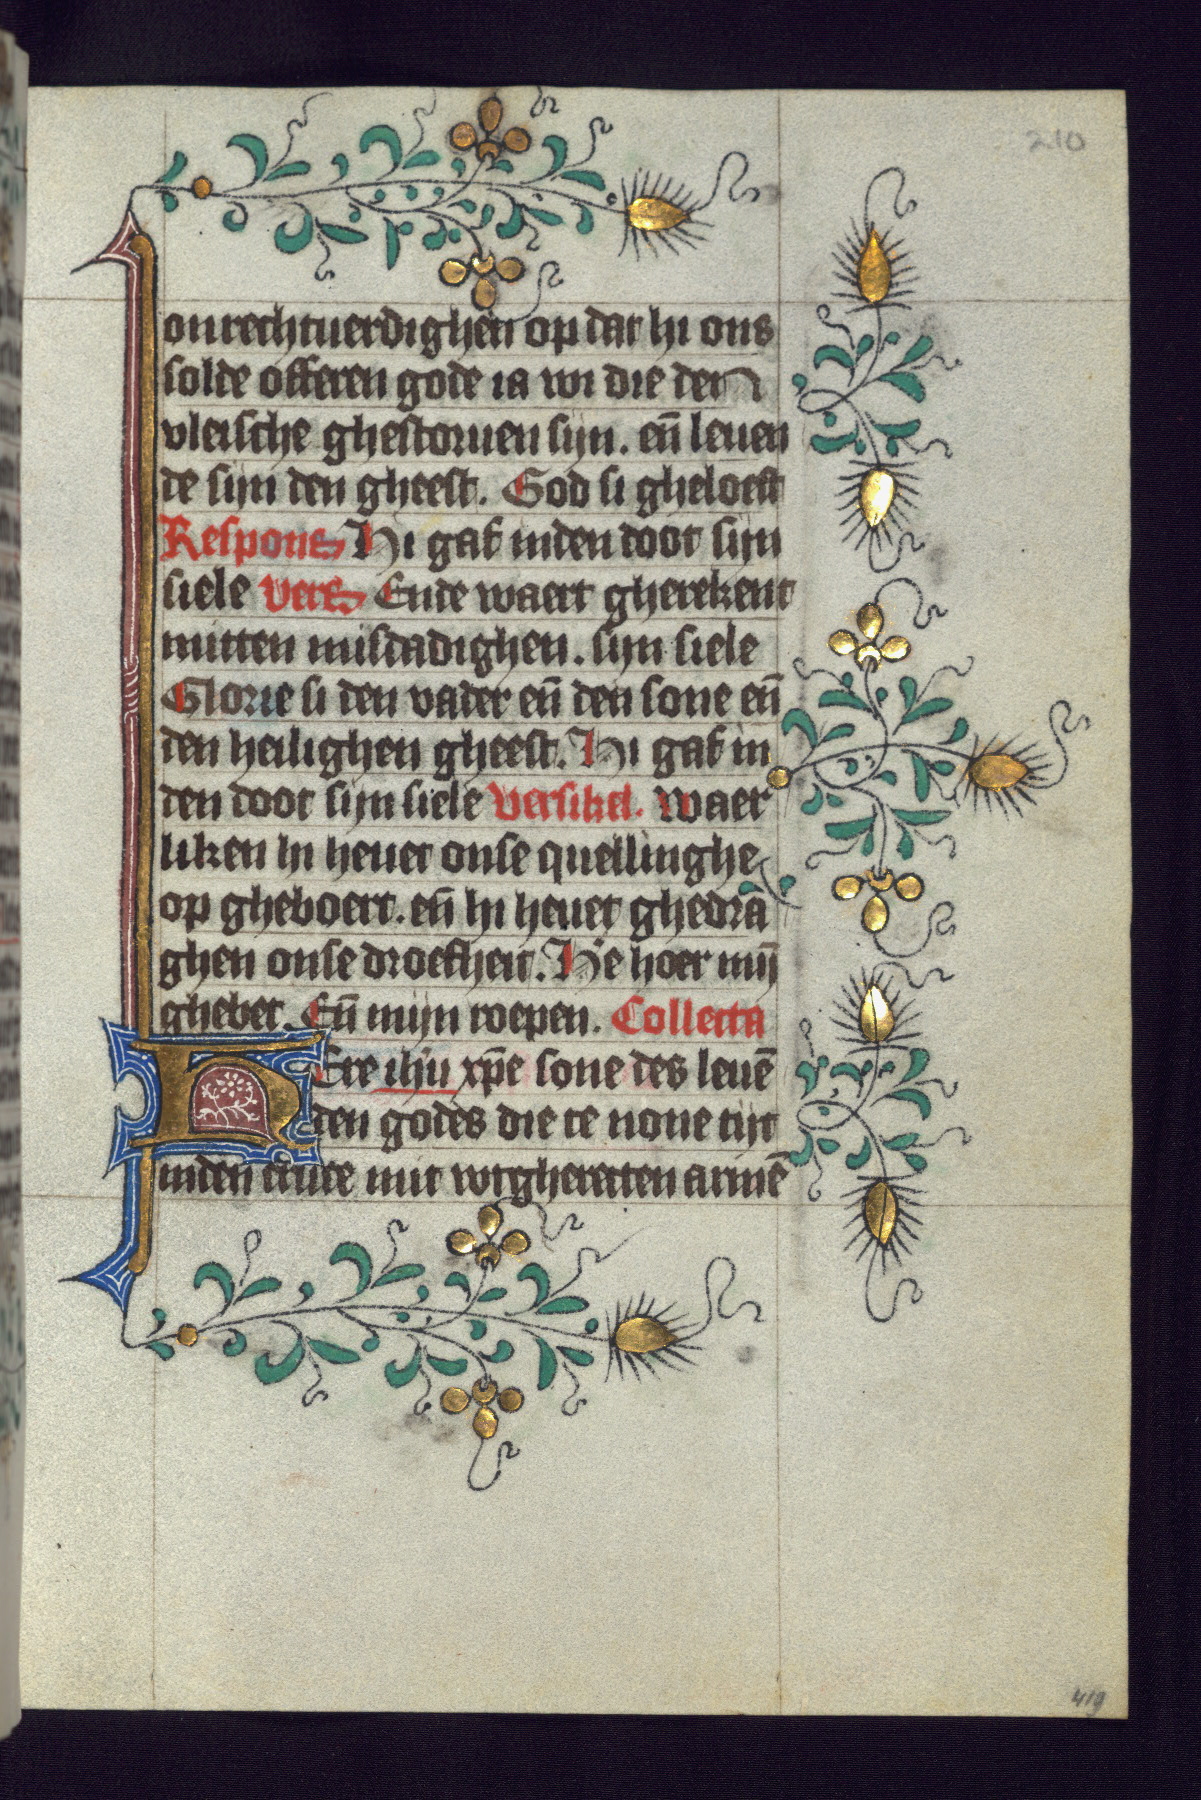 210
onrechtuerdighen op dat hi ons
solde offeren gode ia wi die den
vleische ghestoruen sijn. en̄ leuen
de sijn den gheest. God si gheloeft
Respons Hi gaf inden doot sijn
siele vers Ende waert gherekent
mitten misdadighen. sijn siele
Glorie si den vader en̄ den sone en̄
den heilighen gheest. Hi gaf in
den doot sijn siele versikel. Waer
liken hi heuet onse quellinghe
op gheboert. en̄ hi heuet ghedra
ghen onse droefheit. He hoer mijn̄
ghebet. En̄ mijn roepen. Collecta
HEre ih̄u xp̄e sone des leuē
den godes die te none tijt
inden cruce mit wtgherecten armē
419